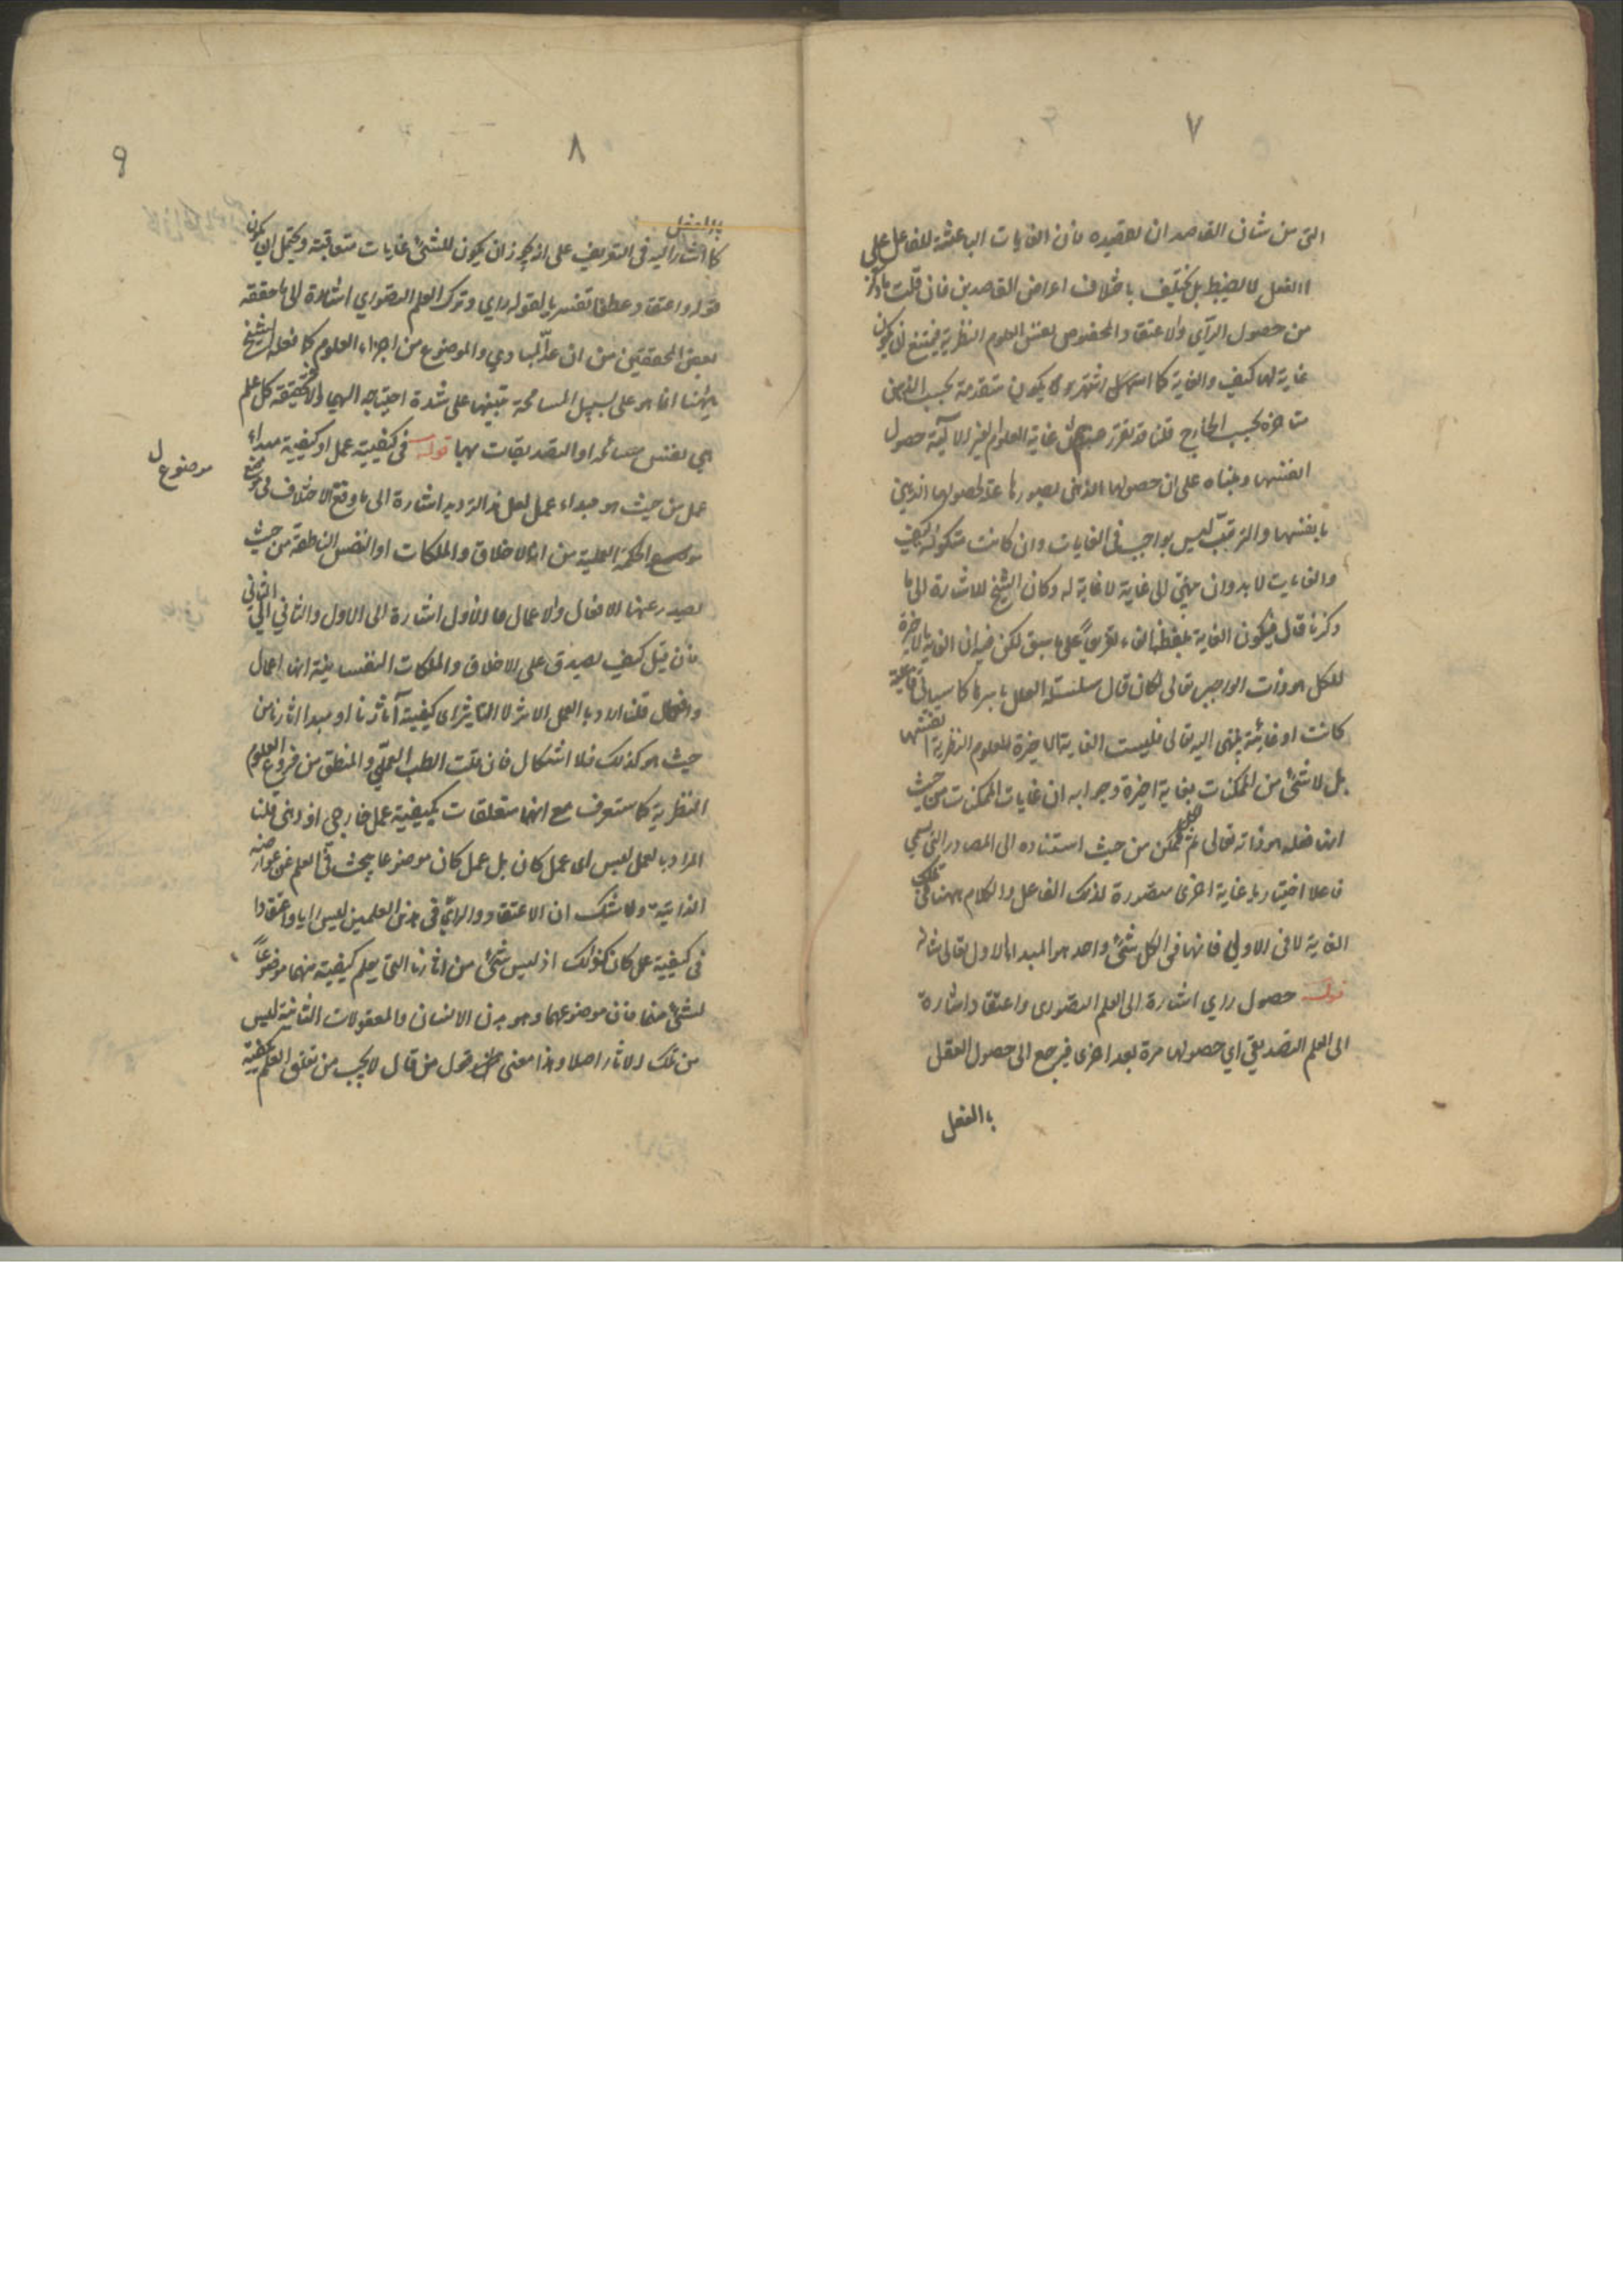 ٧
التى من شان القاصد ان يقصده فان الغايات الباعثة للفاعل على
الفعل لا يضبط بل يختلف باختلاف اعراض القاصدين فان قلت ما ذكر
من حصول الرآي والاعتقاد المخصوص نفس العلوم النظرية فيمتنع ان يكون
غاية لها كيف والغاية كما اشتهر يكون متقدمة بحسب الذهن
متاخرة بحسب الخارج قلنا قد تقرر ان غاية العلوم الغير الآلية حصول
انفسها ومبناه على ان حصولها الذهنى بصورها علة لحصولها الذهنى
بانفسها والترتب ليس بواجب فى الغايات وان كانت
والغايت لا بد وان ينتهى الى غاية لا غاية له وكان الشيخ للاشارة الى ما
ذكرنا قال فيكون الغاية بلفظ الفاء تفريعاً على ما سبق لكن فيه ان الغاية الاخيرة
للكل هو ذات الواجب تعالى فكان قال سلسلة العلل باسرها كما سياتى فاعلية
كانت او غائية ينتهى اليه تعالى فليست الغاية الاخيرة للعلوم النظرية انفسها
بل لا شئ من الممكنات بغاية اخيرة وجوابه ان غايات الممكنات من حيث
انها فعله هو ذاته تعالى ثم للممكن من حيث استناده الى المصادر التى يسمى
فاعلا اختياريا غاية اخرى متصورة لذلك الفاعل والكلام ههنا فى تلك
الغاية لا فى الاولى فانها فى الكل شئ واحد هو المبداء الاول تعالى شانه
قوله حصول رراي اشارة الى العلم التصورى واعتقاد اشارة
الى العلم التصديقى اي حصولها مرة بعد اخرى فيرجع الى حصول العقل
بالفعل
٨
٩
كما اشار اليه فى التعريف على انه يجوز ان يكون للشئ غايات متعاقبة ويحتمل ان يكون
قوله واعتقاد عطفا تفسيريا لقوله راي وترك العلم التصوري اشارة الى ما حققه
بعض المحققين من ان عدّ المبادي والموضوع من اجزاء العلوم كما فعله الشيخ
ههنا انما هو على سبيل المسامحة تنبيها على شدة احتياجه اليها والا فحقيقة كل علم
هي نفس مسائله او التصديقات بها قوله فى كيفية عمل او كيفية مبداء
عمل من حيث هو مبداء عمل لعل هذا الترديد اشارة الى ما وقع الاختلاف فى موضع
موضوع ل
موضوع الحكمة العملية من انه الاخلاق والملكات او النفس الناطقة من حيث
يصدر عنها الافعال والاعمال فالاول اشارة الى الاول والثاني الى الثانى
فان قيل كيف يصدق على الاخلاق والملكات النفسانية انها اعمال
وافعال قلنا اراد بالعمل الاثر لا التاثير اى كيفية آثارنا او مبدا اثارنا من
حيث هو كذلك فلا اشكال فان قلت الطب العملي والمنطق من فروع العلوم
النظرية كما ستعرف مع انها متعلقات بكيفية عمل خارجى او ذهنى قلنا
المراد بالعمل ليس اى عمل كان بل عمل كان موضوعا يبحث فى العلم عن عوارضه
الذاتية ولا شك ان الاعتقاد والراي فى هذين العلمين ليس رايا واعتقادا
فى كيفية عمل كان كذلك اذ ليس شئ من اثارنا التى يعلم كيفيته منهما موضوعاً
لشئ منهما فان موضوعهما وهو بدن الانسان والمعقولات الثانية ليس
من تلك الاثار اصلا وهذا معنى قول من قال لا يجب من تعلق العلم بكيفية